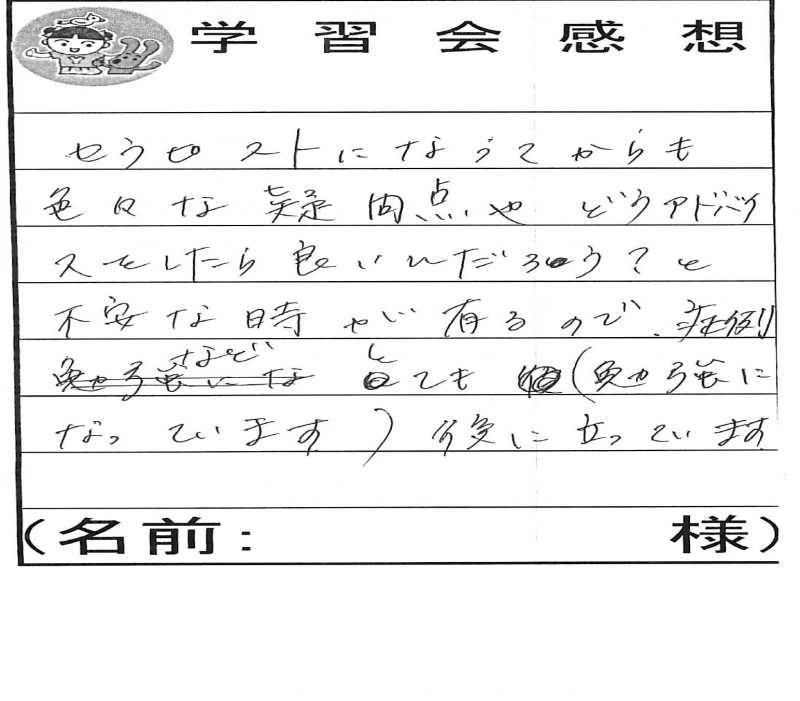 学習会感想
セラピストになってからも
色々な疑問点や どうアドバイ
スをしたら良いんだろう？と
不安な時が有るので、症例
など
勉強にな とても (勉強に
なっています) 役に立っています
(名前: 様)